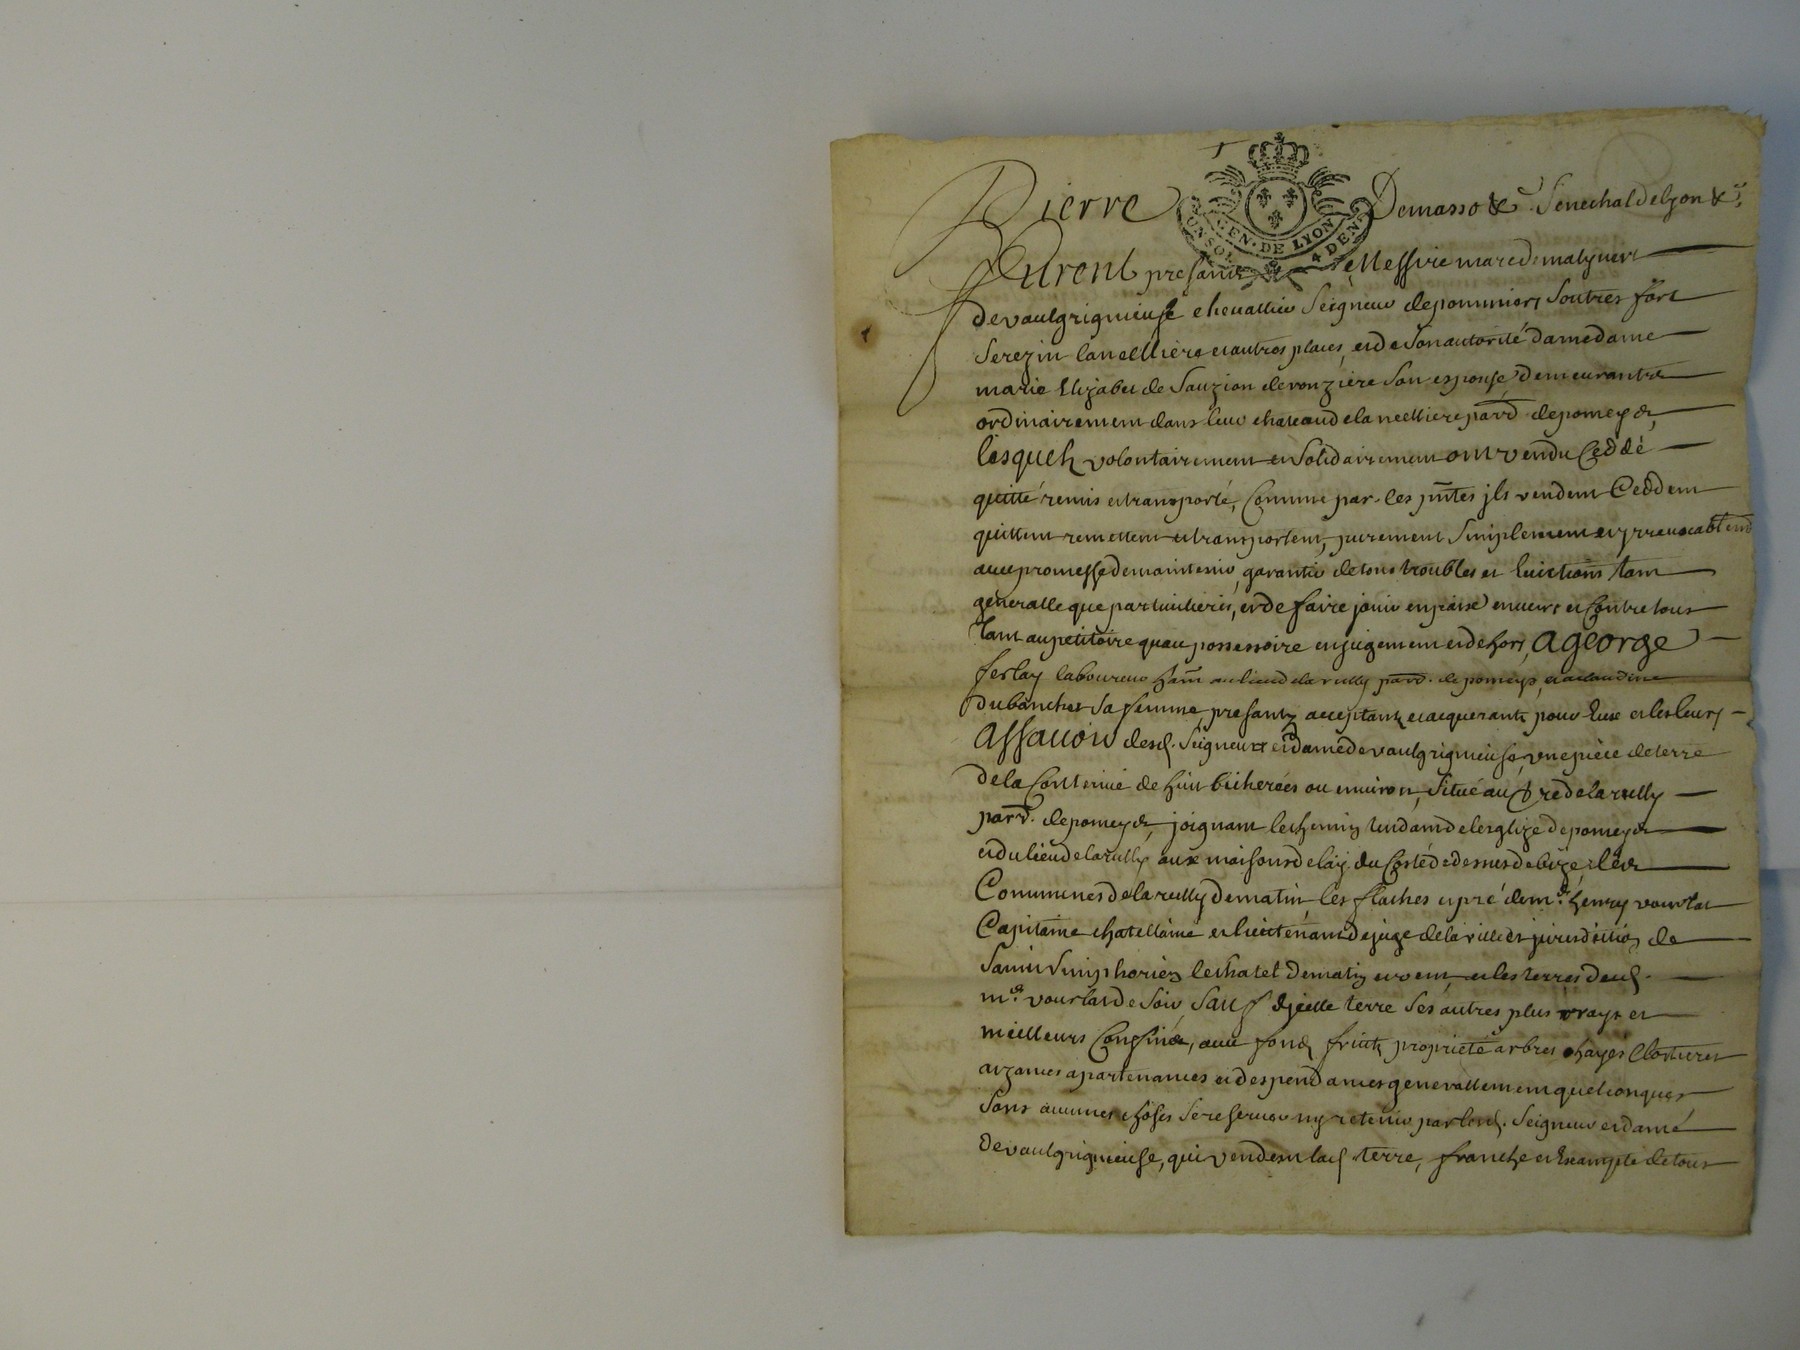 Pierre Demasso &c. Senechal de lyon &c.
GEN. DE LYON
4 DEN.
Furent presants Messire marc de malyvert
de vaulgrignieuse chevallier Seigneur de pommiers Soutres fort
Serezin lanellière et autres places, et de Son autorité dame dame
marie Elizabet de Sauzion de ronzière Son espouse demeurants
ordinairement dans leur chateau de la neelliere parr. de pomeys
lesquels volontairement et Solidairement ont vendu Ceddé
quitté remis et transporté, Comme par les pntes jls vendent Ceddent
quittent remettent et transportent, purement Simplement et yrrevocablemt
avec promesse de maintenir, garantir de tous troubles et Evictions tant
generalle que particulieres, et de faire jouir en paix envers et Contre tous
tant au petitoire qu'au possessoire en jugement et dehors, A george
ferlay laboureur han au lieu de la rully parr. de pomeys, et a claudine
dubanchet Sa femme, presants acceptants et acquerants pour Eux et les leurs
Assavoir desd. Seigneur et dame de vaulgrignieuse, une pièce de terre
de la Contenue de huit bicherées ou environ, Situé au de la rully
parr. de pomeys, joignant le chemin tendant de l'esglize de pomeys
et du lieu de la rully, aux maisons de laij du Costé de dessus de bize, les
Communes de la rully de matin, les flaches et pré de mr. henry vourlat
Capitaine chatellaine et lieutenant de juge de la ville et jurisdiction de
Saint Simphorien le chatel de matin et vent, et les terres dud.
mr. vourlat de Soir, Sauf d'jcelle terre Ses autres plus vrays et
meilleurs Confins, avec fonds fruits proprieté arbres hayes Clostures
aizances apartenances et despendances generallement quelconques
Sans aucunes choses Se reserver ny retenir par lesd. Seigneur et dame
de vaulgrignieuse, qui vendent lad terre, franche et Exampte de tous